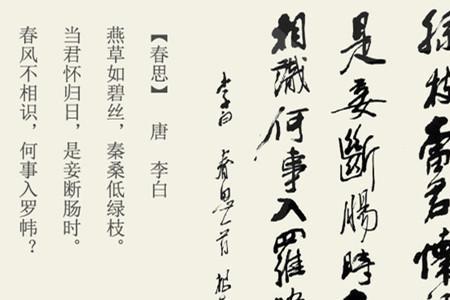 绿枝當君懷
是妾斷腸時
相識何事入羅
李白春思一首
【春思】 唐 李白
燕草如碧丝，秦桑低绿枝。
当君怀归日，是妾断肠时。
春风不相识，何事入罗帏？